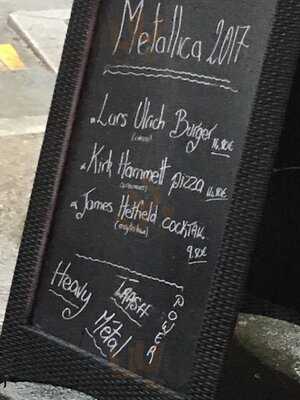 Metallica 2017
Lars Ulrich Burger
16,90€
Kirk Hammett pizza
James Hetfield cocktail
9.90€
Heavy
Metal
POWER